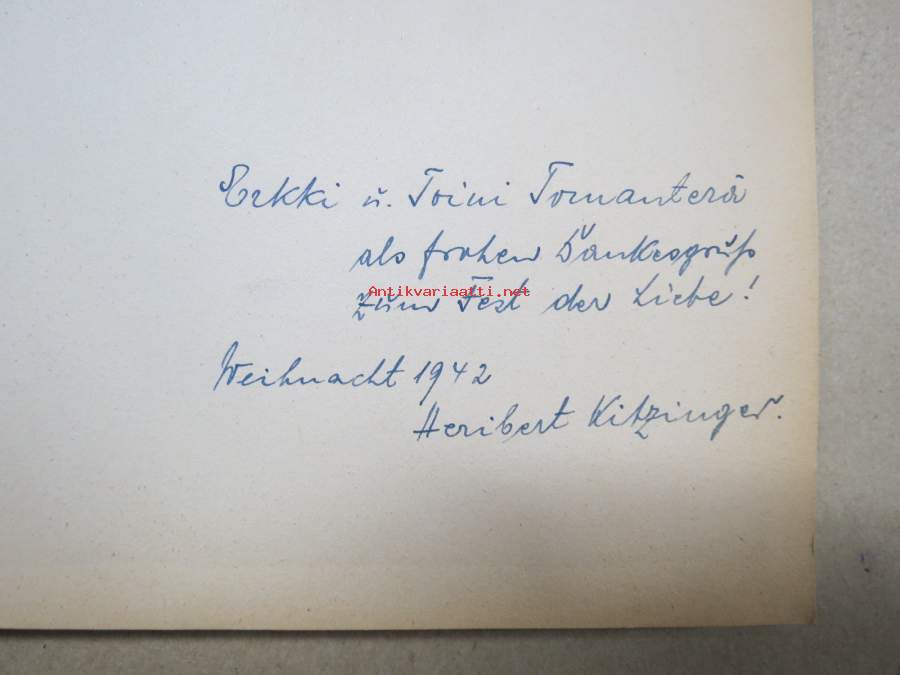 Erkki u. Toini Tomanterä
als frohen Dankesgruß
Antikvariaatti.net
zum Fest der Liebe!
Weihnacht 1942
Heribert Kitzinger.